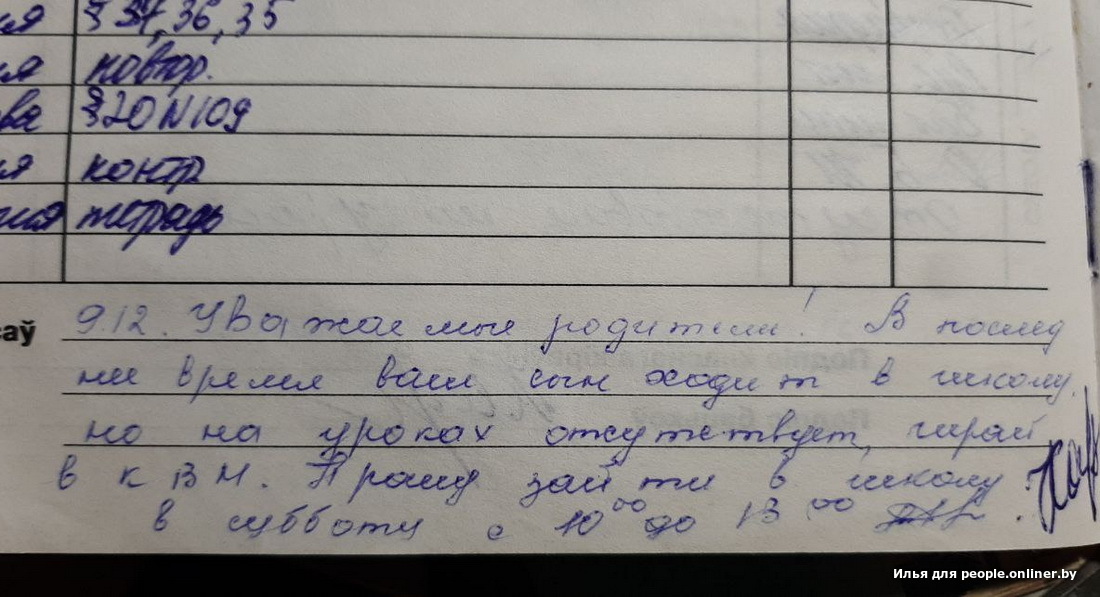 ия § 37, 36, 35
ия повтор.
ва § 20 N 109
ия контр
ния тетрадь
саў 9.12. Уважаемые родители! В послед
нее время ваш сын ходит в школу,
но на уроках отсутствует, играя
в КВН. Прошу зайти в школу
в субботу с 10 00 до 13 00
Илья для people.onliner.by